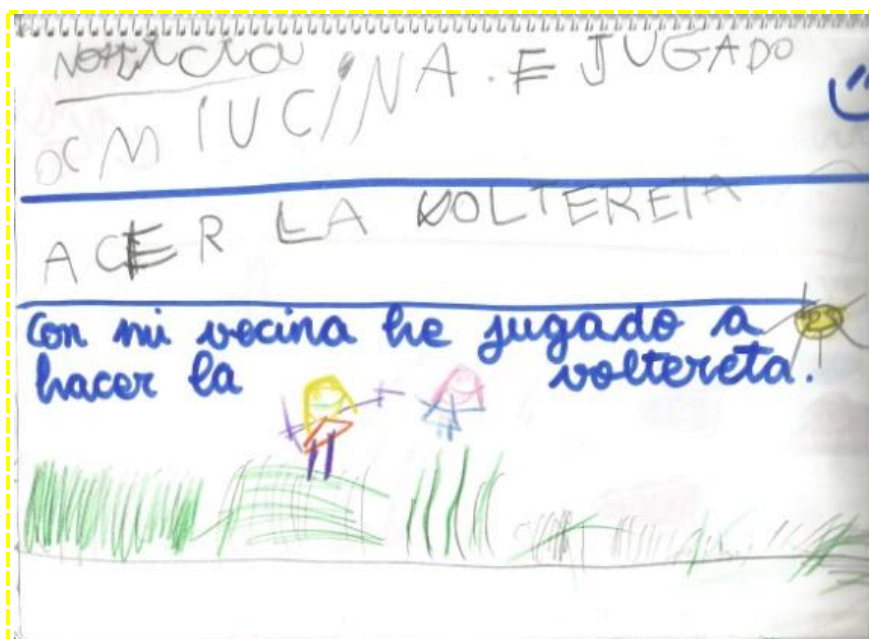 Noticia
OCM IUCINA. E JUGADO
ACER LA VOLTERETA
Con mi vecina he jugado a
hacer la voltereta.